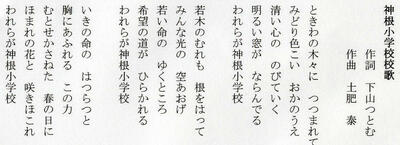 神根小学校校歌
作詞 下山つとむ
作曲 土肥 泰
ときわの木々に つつまれて
みどり色こい おかのうえ
清い心の のびていく
明るい窓が ならんでる
われらが神根小学校
若木のむれも 根をはって
みんな光の 空あおげ
若い命の ゆくところ
希望の道が ひらかれる
われらが神根小学校
いきの命の はつらつと
胸にあふれる この力
むとせかさねた 春の日に
ほまれの花と 咲きほこれ
われらが神根小学校